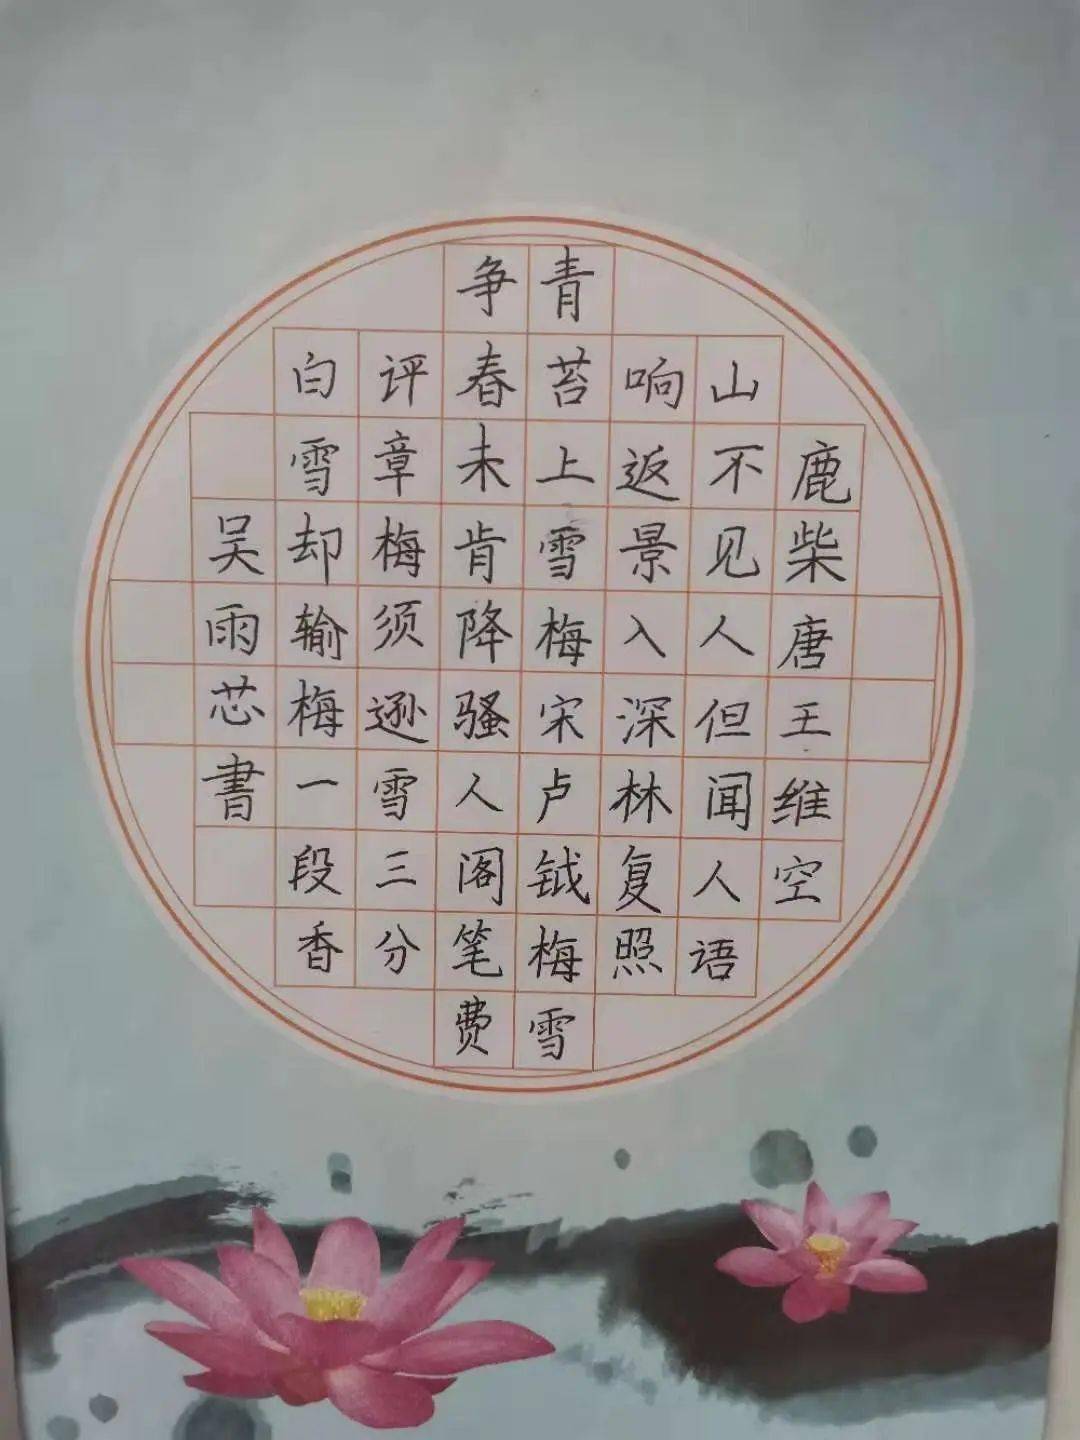 鹿柴唐王维空
山不见人但闻人语
响返景入深林复照
青苔上雪梅宋卢钺梅雪
争春未肯降骚人阁笔费
评章梅须逊雪三分
白雪却输梅一段香
吴雨芯書